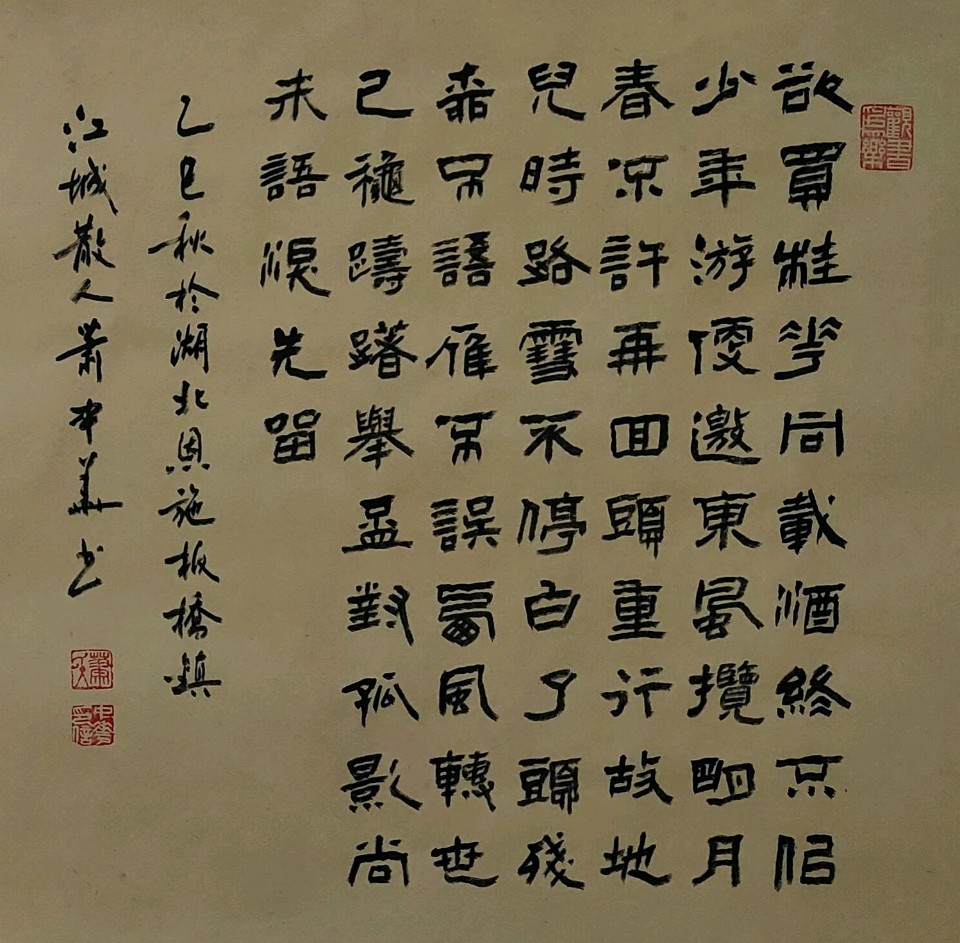 觀書為樂
欲買桂花同載酒終不佀
少年游便邀東風攬明月
春凉許再回頭重行故地
兒時路雪不停白了頭殘
葉不語雁不誤夢風轉世
已穐躊躇舉盃對孤影尚
未語淚先留
乙巳秋於湖北恩施板橋鎮
江城散人蕭中華書
中華印信